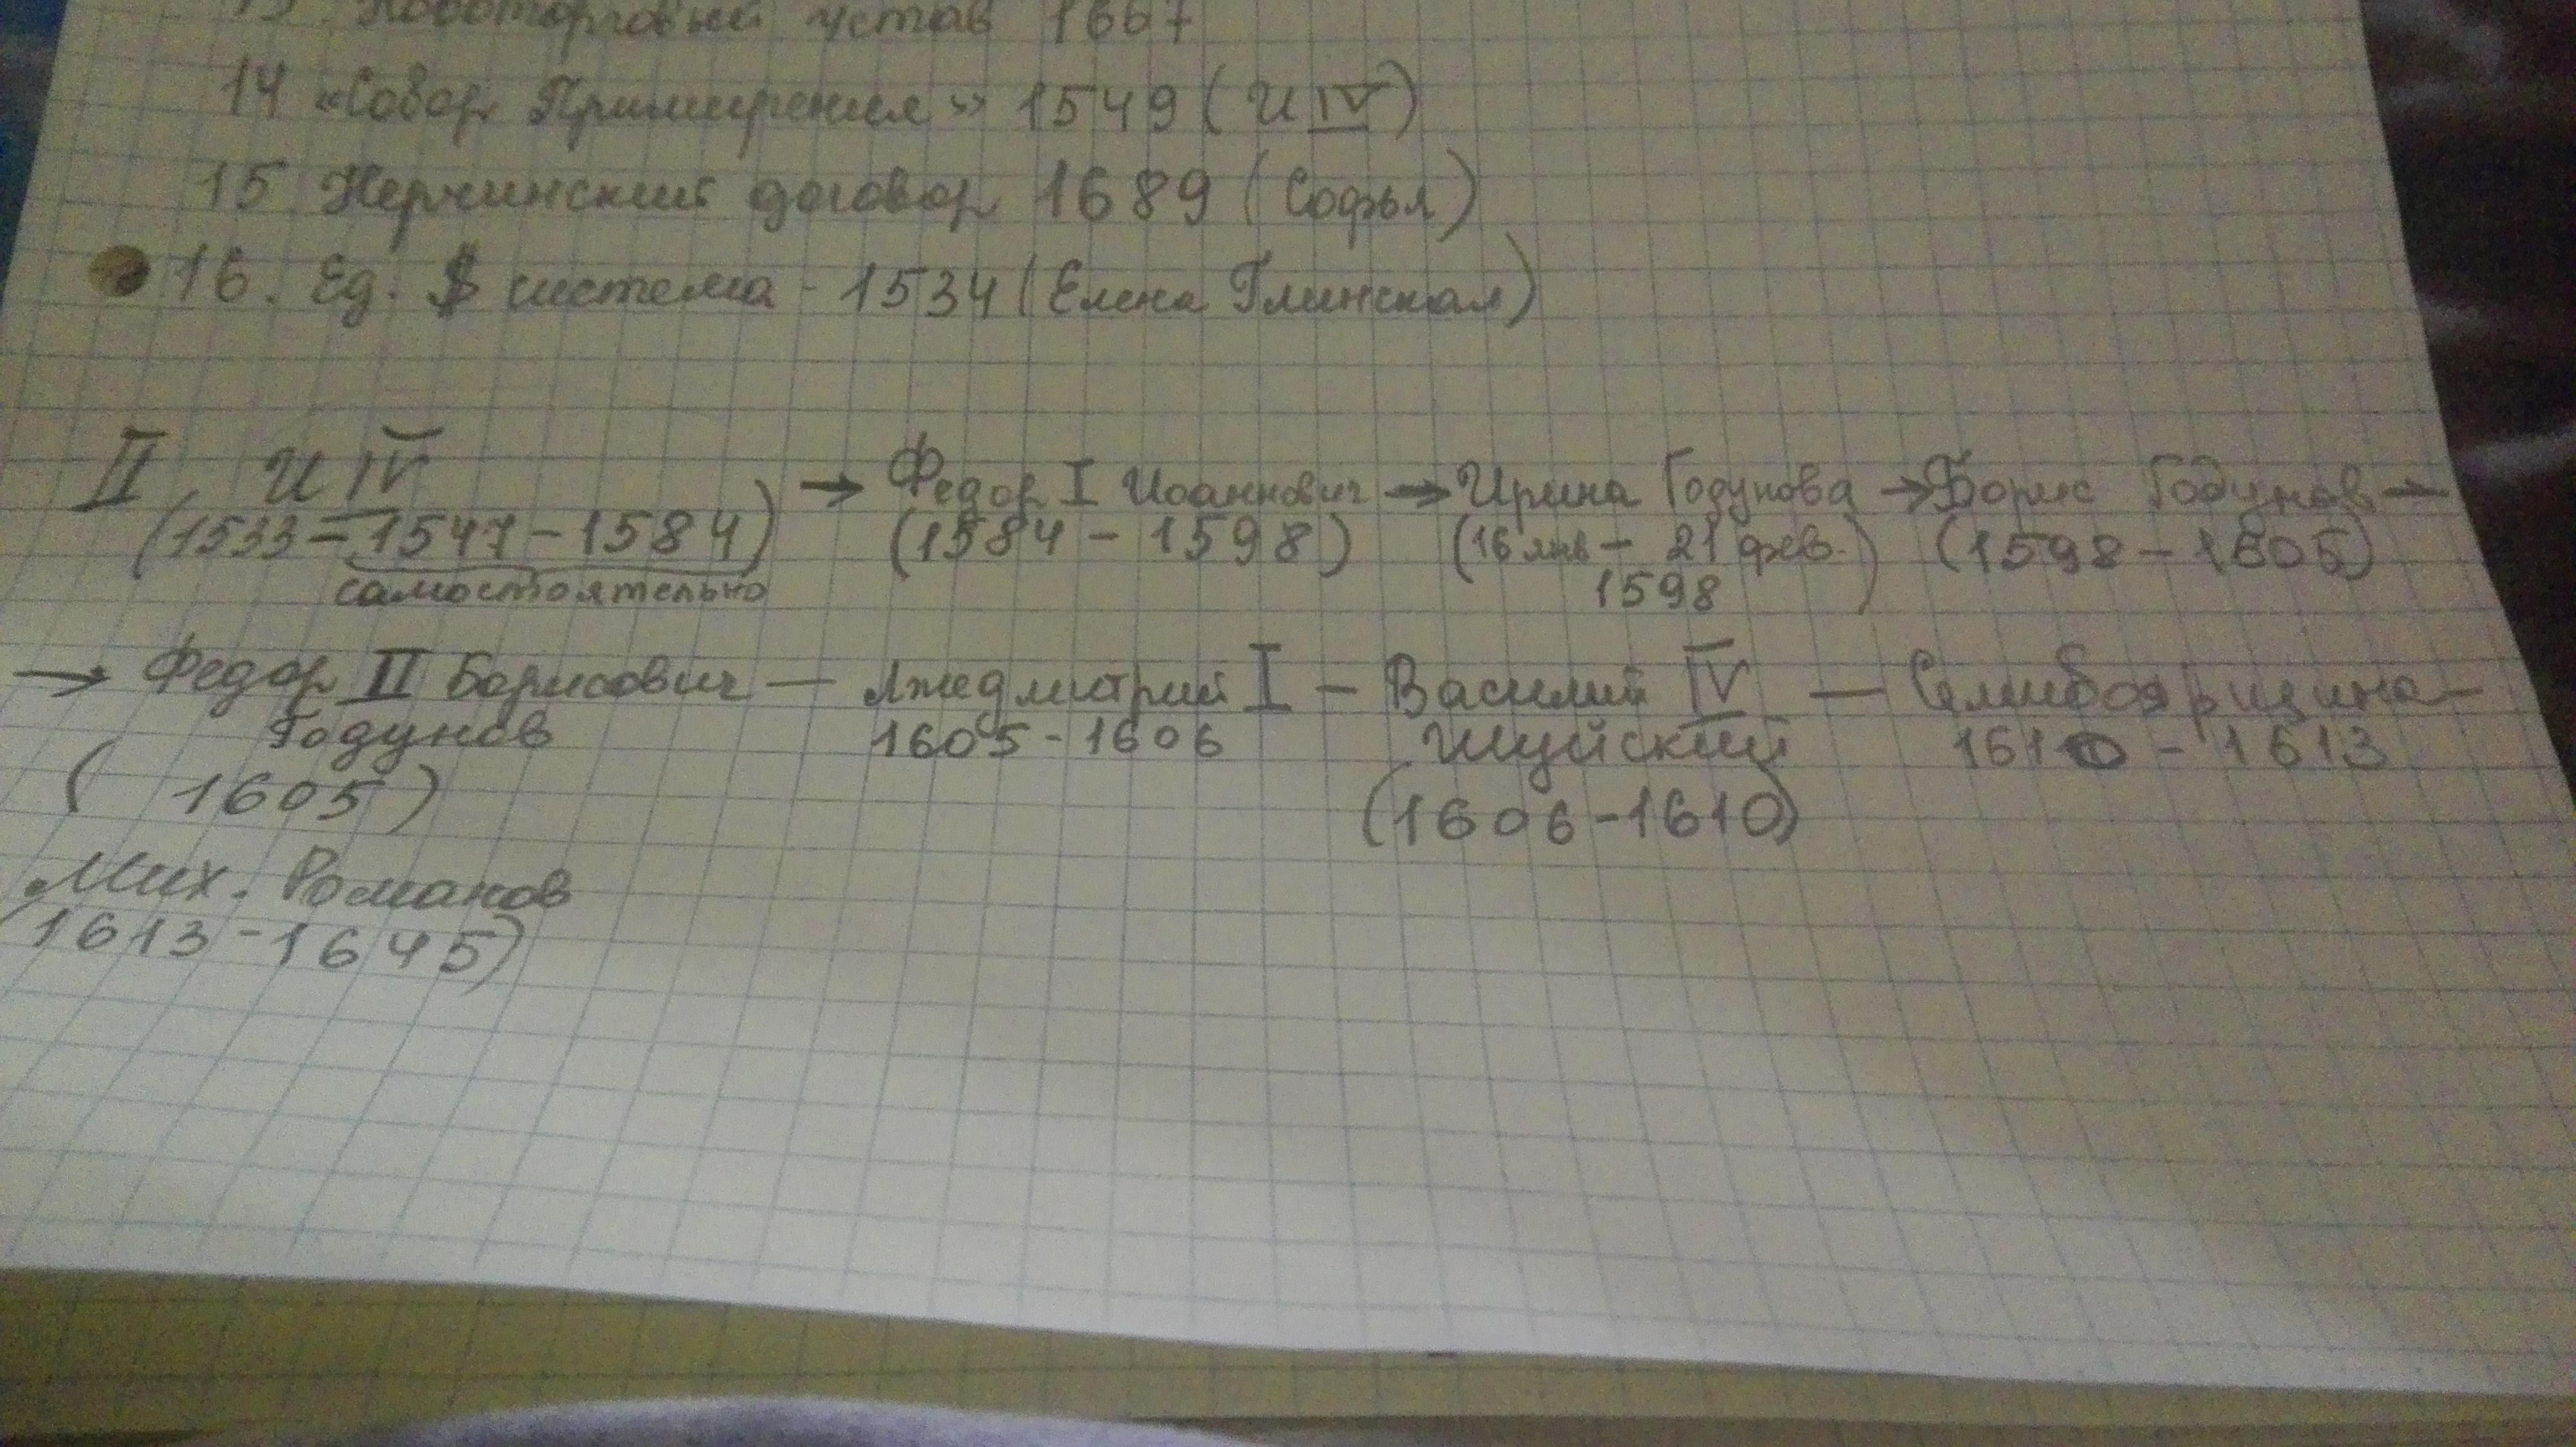 13. Новоторговый устав 1667
14 «Собор Примирения» 1549 (И IV)
15. Нерчинский договор 1689 (Софья)
16. Ед. $ система - 1534 (Елена Глинская)
II. И IV → Федор I Иоаннович → Ирина Годунова → Борис Годунов →
(1533 - 1547 - 1584) (1584 - 1598) (16 янв - 21 фев. (1598 - 1605)
самостоятельно 1598)
→ Федор II Борисович — Лжедмитрий I — Василий IV — Семибоярщина —
Годунов 1605 - 1606 Шуйский 1610 - 1613
(1605) (1606 - 1610)
Мих. Романов
(1613 - 1645)